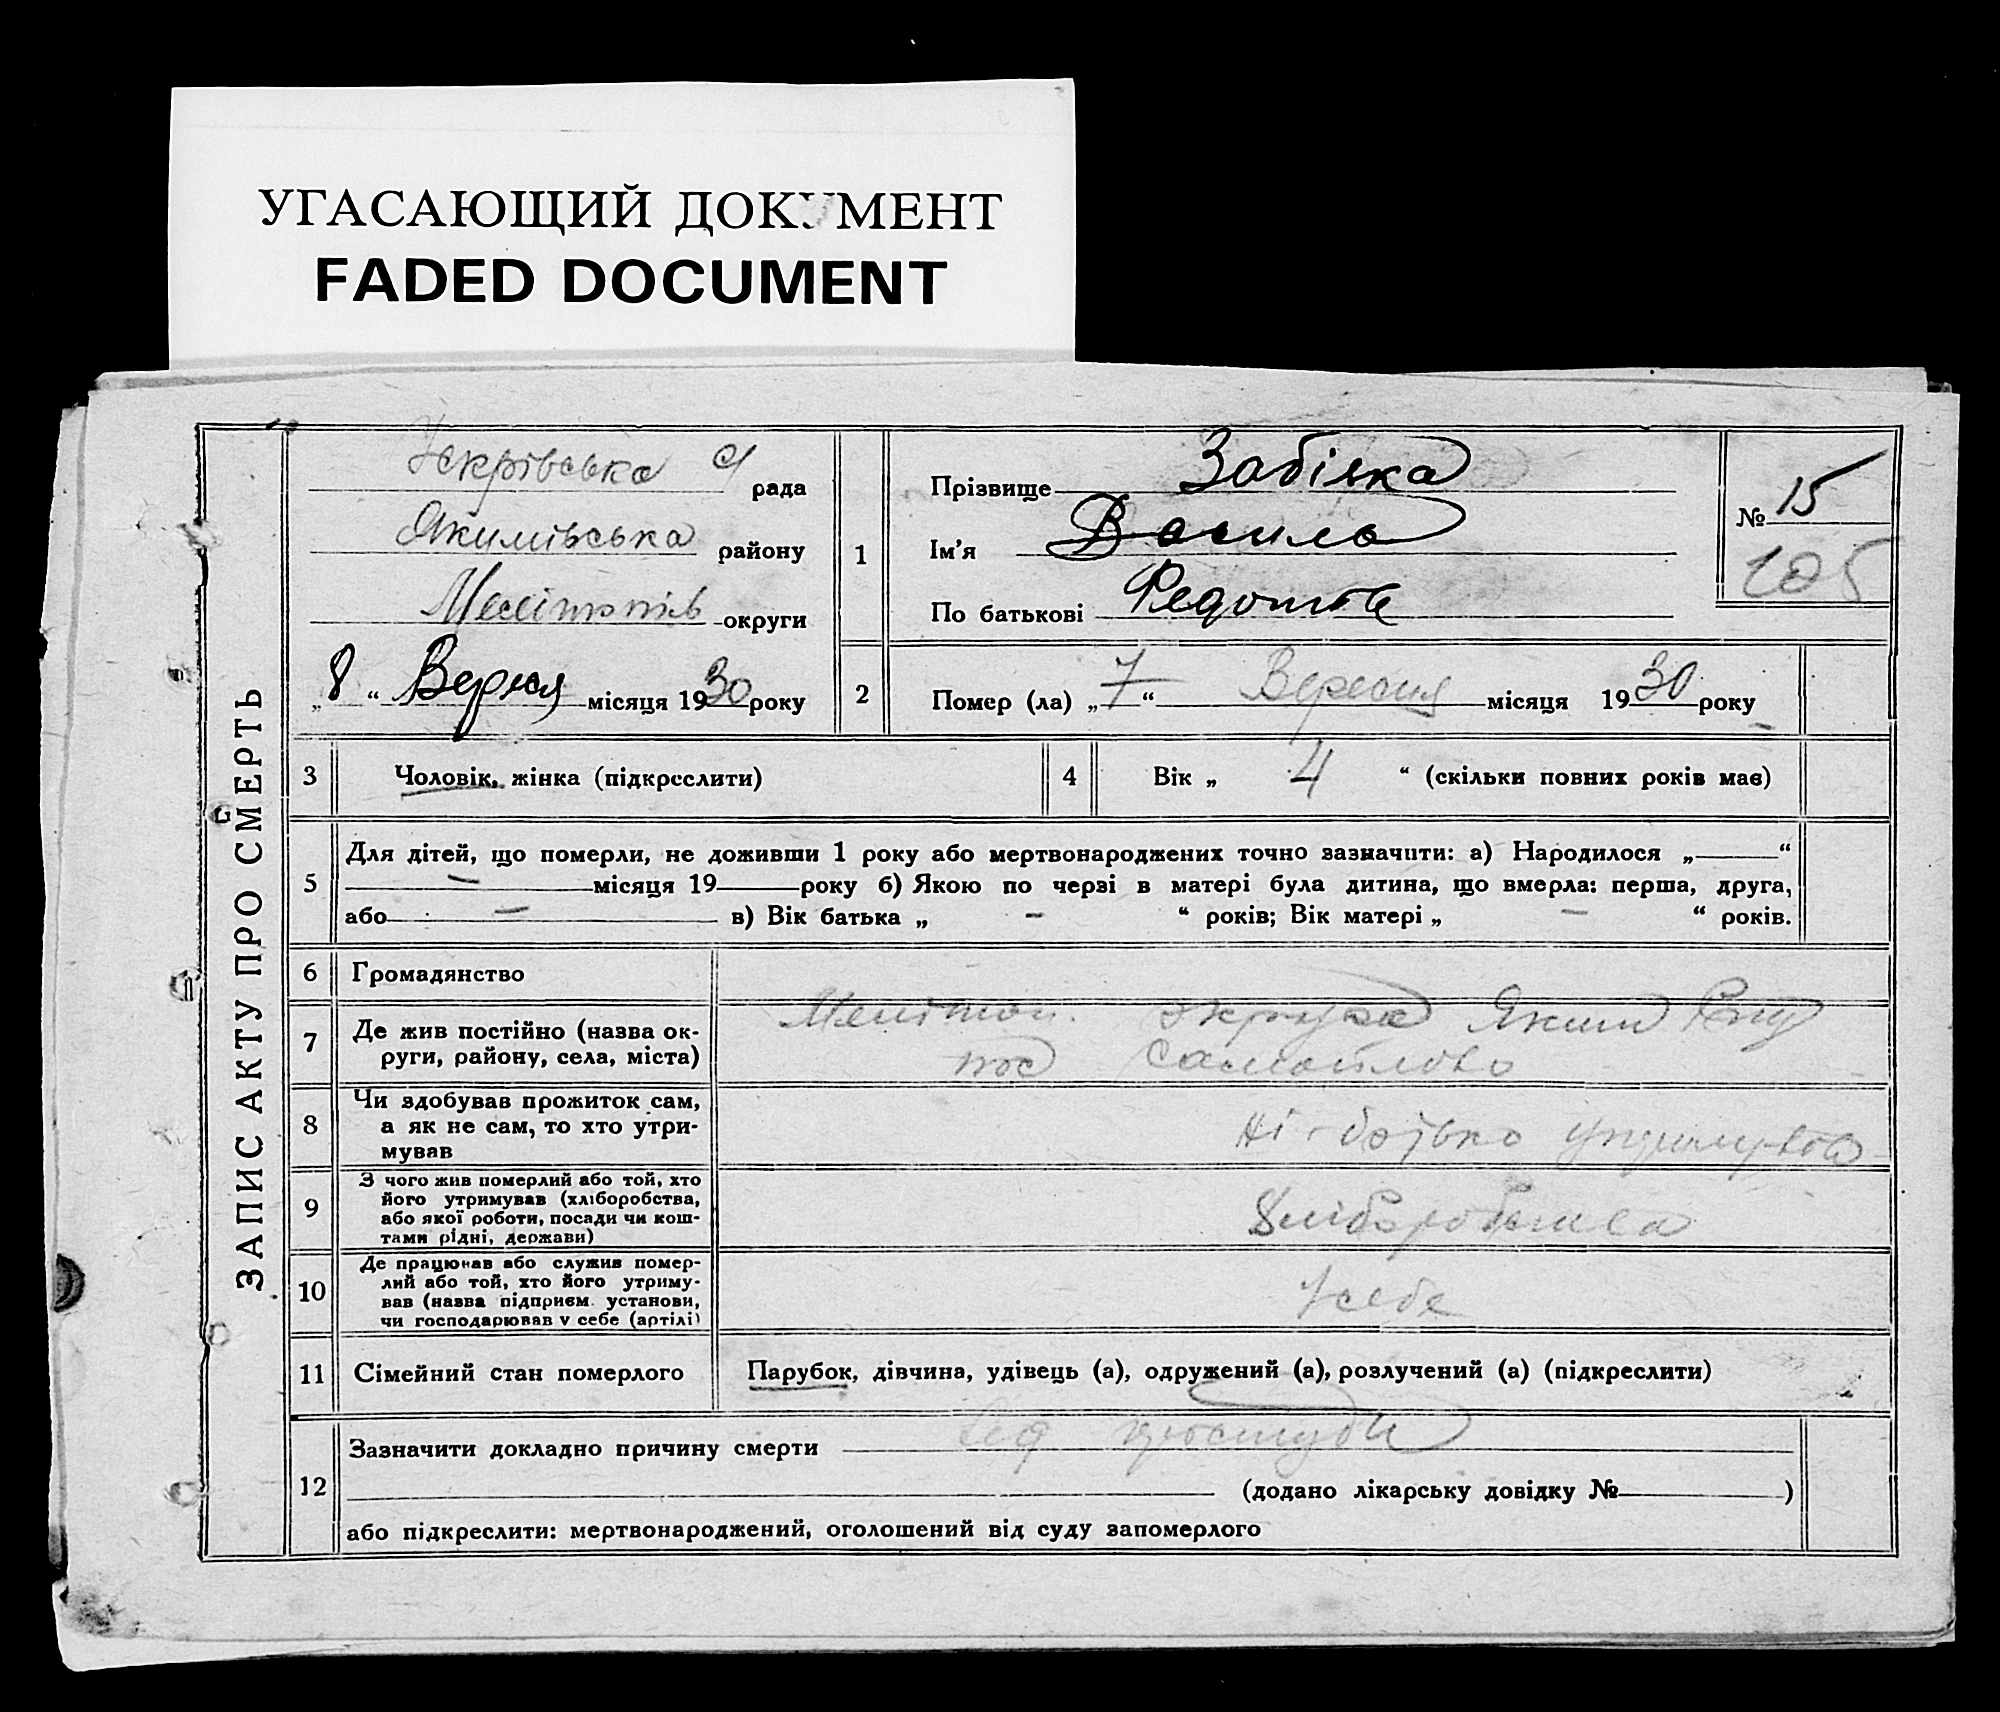 УГАСАЮЩИЙ ДОКУМЕНТ
FADED DOCUMENT
ЗАПИС АКТУ ПРО СМЕРТЬ
Іскрівська с/рада
Якимівська району
Мелітопів округи
„8“ Верєсня місяця 1930 року
1
Прізвище Забіяка
Ім'я Василь
По батькові Федотів
№ 15
105
2
Помер (ла) „7“ Вересня місяця 1930 року
3 Чоловік, жінка (підкреслити)
4 Вік „ 4 “ (скільки повних років має)
5 Для дітей, що померли, не доживши 1 року або мертвонароджених точно зазначити: а) Народилося „ “
– місяця 19 року б) Якою по черзі в матері була дитина, що вмерла: перша, друга,
або – в) Вік батька „ – “ років; Вік матері „ – “ років.
6 Громадянство
7 Де жив постійно (назва округи, району, села, міста) Мелітоп. округа Яким
пос Самойлово
8 Чи здобував прожиток сам,
а як не сам, то хто утри-
мував
ні - батько утримував
9 З чого жив померлий або той, хто
його утримував (хліборобства,
або якої роботи, посади чи кош-
тами рідні, держави)
Хліборобства
10 Де працював або служив помер-
лий або той, хто його утриму-
вав (назва підприєм. установи,
чи господарював у себе (артілі)
У себе
11 Сімейний стан померлого Парубок, дівчина, удівець (а), одружений (а), розлучений (а) (підкреслити)
12 Зазначити докладно причину смерти Від простуди
(додано лікарську довідку № )
або підкреслити: мертвонароджений, оголошений від суду запомерлого